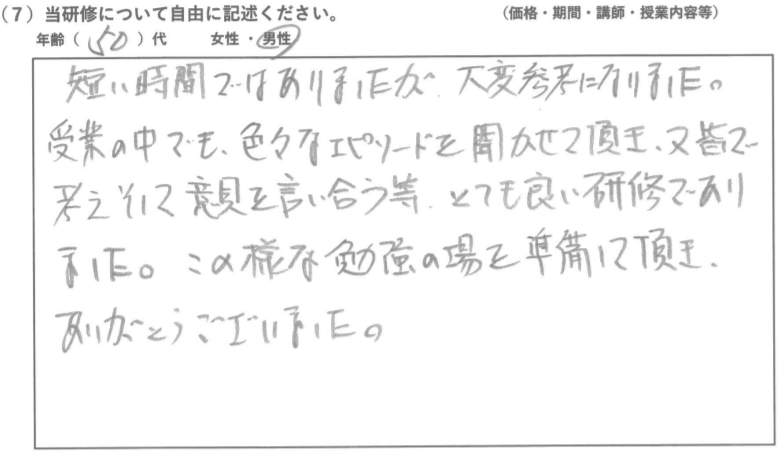 (7) 当研修について自由に記述ください。 (価格・期間・講師・授業内容等)
年齢 ( 50 ) 代 女性 ・ 男性
短い時間ではありましたが、大変参考になりました。
受業の中でも、色々なエピソードを聞かせて頂き、又皆で
考えそして意見を言い合う等、とても良い研修であり
ました。この様な勉強の場を準備して頂き、
ありがとうございました。